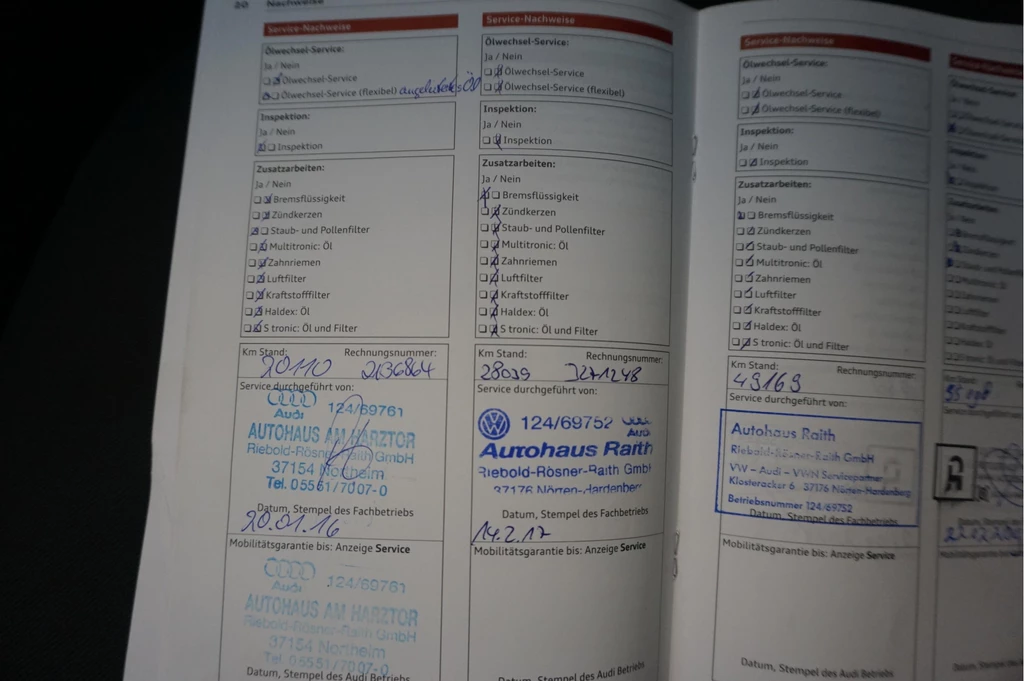 Nachweise
Service-Nachweise
Ölwechsel-Service:
Ja / Nein
Ölwechsel-Service
Ölwechsel-Service (flexibel)
Inspektion:
Ja / Nein
Inspektion
Zusatzarbeiten:
Ja / Nein
Bremsflüssigkeit
Zündkerzen
Staub- und Pollenfilter
Multitronic: Öl
Zahnriemen
Luftfilter
Kraftstofffilter
Haldex: Öl
S tronic: Öl und Filter
Km Stand: Rechnungsnummer:
20110 2136864
Service durchgeführt von:
Audi 124/69761
AUTOHAUS AM HARZTOR
Riebold-Rösner-Raith GmbH
37154 Northeim
Tel. 05551/7007-0
Datum, Stempel des Fachbetriebs
20.01.16
Mobilitätsgarantie bis: Anzeige Service
Audi 124/69761
AUTOHAUS AM HARZTOR
Riebold-Rösner-Raith GmbH
37154 Northeim
Tel. 05551/7007-0
Datum, Stempel des Audi Betriebs
Service-Nachweise
Ölwechsel-Service:
Ja / Nein
Ölwechsel-Service
Ölwechsel-Service (flexibel)
Inspektion:
Ja / Nein
Inspektion
Zusatzarbeiten:
Ja / Nein
Bremsflüssigkeit
Zündkerzen
Staub- und Pollenfilter
Multitronic: Öl
Zahnriemen
Luftfilter
Kraftstofffilter
Haldex: Öl
S tronic: Öl und Filter
Km Stand: Rechnungsnummer:
28039 3271248
Service durchgeführt von:
124/69752 Audi
Autohaus Raith
Riebold-Rösner-Raith GmbH
37176 Nörten-Hardenberg
Datum, Stempel des Fachbetriebs
14.2.17
Mobilitätsgarantie bis: Anzeige Service
Datum, Stempel des Audi Betriebs
Service-Nachweise
Ölwechsel-Service:
Ja / Nein
Ölwechsel-Service
Ölwechsel-Service (flexibel)
Inspektion:
Ja / Nein
Inspektion
Zusatzarbeiten:
Ja / Nein
Bremsflüssigkeit
Zündkerzen
Staub- und Pollenfilter
Multitronic: Öl
Zahnriemen
Luftfilter
Kraftstofffilter
Haldex: Öl
S tronic: Öl und Filter
Km Stand: Rechnungsnummer:
49169
Service durchgeführt von:
Autohaus Raith
Riebold-Rösner-Raith GmbH
VW - Audi - VWN Servicepartner
Klosteracker 6 37176 Nörten-Hardenberg
Betriebsnummer 124/69752
Datum, Stempel des Fachbetriebs
Mobilitätsgarantie bis: Anzeige Service
Datum, Stempel des Audi Betriebs